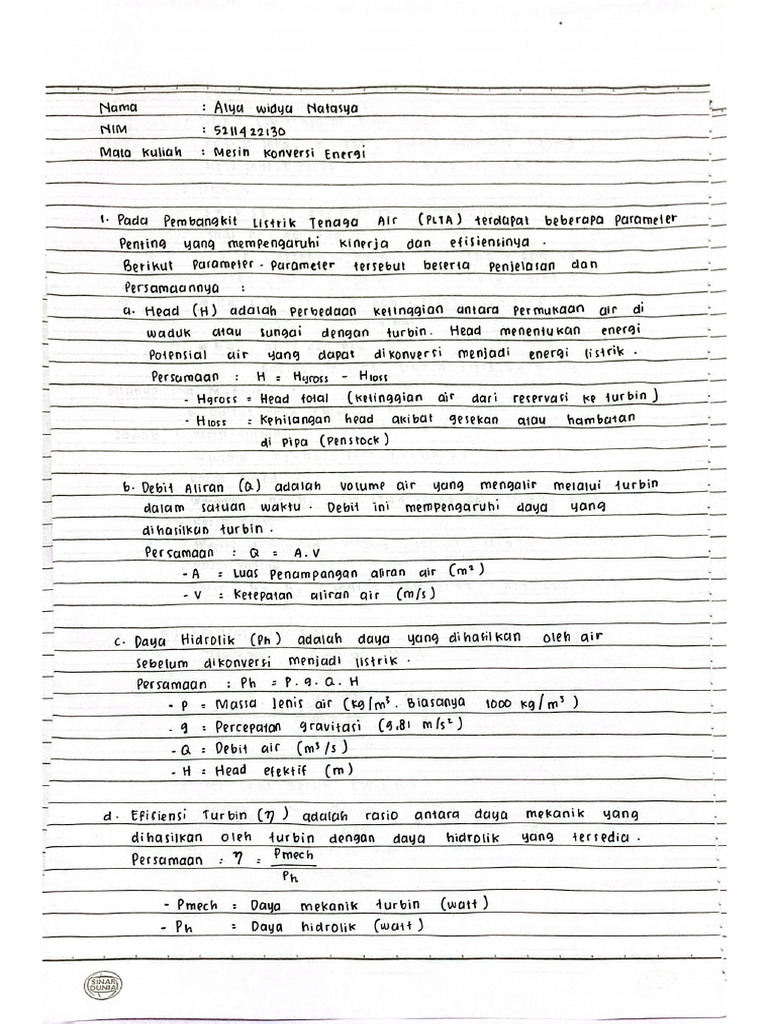 Nama : Alya Widya Natasya
NIM : 5211422130
Mata Kuliah : Mesin Konversi Energi
1. Pada Pembangkit Listrik Tenaga Air (PLTA) terdapat beberapa Parameter
Penting yang mempengaruhi kinerja dan efisiensinya.
Berikut Parameter-Parameter tersebut beserta penjelasan dan
Persamaannya :
a. Head (H) adalah perbedaan ketinggian antara permukaan air di
waduk atau sungai dengan turbin. Head menentukan energi
Potensial air yang dapat dikonversi menjadi energi listrik.
Persamaan : H = Hgross - Hloss
- Hgross = Head total (ketinggian air dari reservasi ke turbin)
- Hloss = Kehilangan head akibat gesekan atau hambatan
di pipa (Penstock)
b. Debit Aliran (Q) adalah volume air yang mengalir melalui turbin
dalam satuan waktu. Debit ini mempengaruhi daya yang
dihasilkan turbin.
Persamaan : Q = A.V
- A = Luas Penampangan aliran air (m²)
- V = Ketepatan aliran air (m/s)
c. Daya Hidrolik (Ph) adalah daya yang dihasilkan oleh air
sebelum dikonversi menjadi listrik.
Persamaan : Ph = P.g.Q.H
- P = Massa Jenis air (kg/m³. Biasanya 1000 kg/m³)
- g = Percepatan gravitasi (9.81 m/s²)
- Q = Debit air (m³/s)
- H = Head efektif (m)
d. Efisiensi Turbin (η) adalah rasio antara daya mekanik yang
dihasilkan oleh turbin dengan daya hidrolik yang tersedia.
Persamaan : η = Pmech
Ph
- Pmech = Daya mekanik turbin (watt)
- Ph = Daya hidrolik (watt)
SINAR
DUNIA